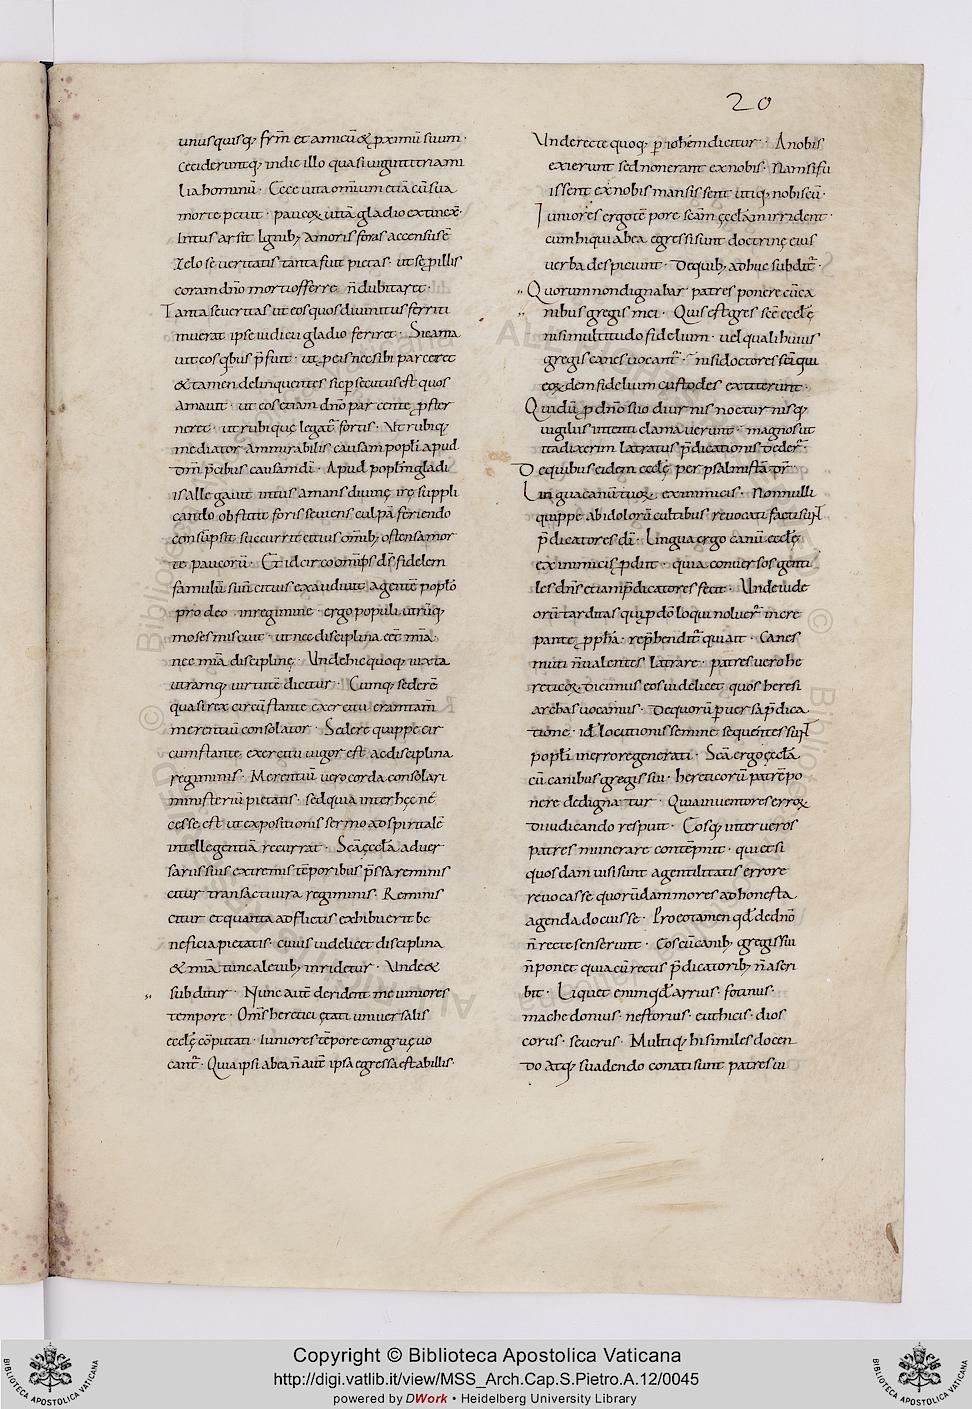 20
unusquisq; frm̄ et amicū & p̱ximū suum·
cecideruntq; indie illo quasi uiginti tria mi
lia hominū· Ecce uita omnium etiā cū sua
morte petiit· paucoꝝ uitā gladio extinxit·
Intus arsit ignib; amoris foras accensus ē
Zelo seueritatis tanta fuit pietas· ut se ꝓ illis
coram dn̄o morti offerre· n̄ dubitaret·
Tanta seueritas ut eos quos diuinitus feriri
timuerat ipse iudicii gladio feriret· Sic ama
uit eos quibus p̄fuit· ut ꝓ eis nec sibi parceret
& tamen delinquentes sic ꝑsecutus est quos
amauit· ut eos etiam dn̄o parcente ꝓster
neret· utrubique legat' fortis· utrubiq;
mediator ammirabilis causam popli apud
dm̄ p̄cibus causam dī· Apud poplm̄ gladi
is allegauit intus amans diuinę irę suppli
cando obstitit foris seuiens culpā feriendo
consūpsit succurrit citius omīb; ostensa mor
te paucorū· Et idcirco omīps ds̄ fidelem
famulū suū citius exaudiuit agentē poplo
pro deo· in regimine· ergo populi utrūq;
moses miscuit· ut nec disciplina eēt mīa·
nec mīa disciplinę· Unde hic quoq; iuxta
utramq; uirtutē dicitur· Cumq; sederē
quasi rex circūstante exercitu eram tam̄
merentiū consolator· Sedere quippe cir
cumstante exercitu uigor est ac disciplina
regiminis· Merentiū uero corda consolari
ministeriū pietatis· sed quia inter hęc ne
cesse est ut expositionis sermo ad spiritalē
intellegentiā recurrat· Scā ęccla aduer
sariis suis extremis tēporibus p̄ssa reminis
citur transacti uira regiminis· Reminis
citur et quanta adflictis exhibuerit be
neficia pietatis· cuius uidelicet disciplina
& mīa tunc a leuib; inridetur· Unde &
subditur· Nunc autē derident me iuniores
tempore· Oms̄ heretici ętati uniuersalis
ecclę cōputati· iuniores tēpore congrue uo
cant'· Quia ipsi ab ea n̄ autē ipsa egressa est ab illis·
Unde recte quoq; ꝑ iohēm dicitur· A nobis
exierunt sed non erant ex nobis· Nam si fu
issent ex nobis mansissent utiq; nobiscū·
Iuniores ergo tēpore scām ęcclām irrident·
cum hi qui ab ea egressi sunt doctrinę eius
uerba despiciunt· De quib; adhuc subdit'·
Quorum non dignabar patres ponere cū ca
nibus gregis mei· Quis est grex scē ecclę
nisi multitudo fidelium· uel qualis huius
gregis canes uocant'· nisi doctores sci qui
eoꝝdem fidelium custodes extiterunt·
Qui dū ꝓ dn̄o suo diurnis nocturnisq;
uigiliis intenti clamauerunt· magnos ut
ita dixerim latratus p̄dicationis deder̄·
De quibus eidem ecclę per psalmistā dr̄·
Lingua canū tuoꝝ ex inimicis· Nonnulli
quippe ab idolorū cultibus reuocati facti sunt
p̄dicatores dī· Lingua ergo canū ecclę
ex inimicis ꝓdiit· quia conuersos genti
les dn̄s etiam p̄dicatores fecit· Unde iude
orū tarditas quę ꝓ dō loqui noluer̄ incre
pante ꝓphā· rep̄hendit' qui ait· Canes
muti n̄ ualentes latrare· patres uero he
reticoꝝ dicimus eos uidelicet quos heresi
archas uocamus· De quorū ꝑuersa p̄dica
tione· id locutionis semine sequentes sunt
popli in errore generati· Scā ergo ęccla
cū canibus gregis sui· hereticorū patrē po
nere dedignatur· Quia inuentores erroꝝ
diiudicando respuit· Eosq; inter ueros
patres numerare contēpnit· qui etsi
quosdam uisi sunt a gentilitatis errore
reuocasse quorūdam mores ad honesta
agenda docuisse· Pro eo tamen qd de dn̄o
n̄ recte senserunt· Eos cū canib; gregis sui
n̄ ponet quia cū rectis p̄dicatorib; n̄ aseri
bit· Liquet enim qd arrius· fotinus·
machedonius· nestorius· euthicis· dios
corus· seuerus· Multiq; hi similes docen
do atq; suadendo conati sunt patres ui
Copyright © Biblioteca Apostolica Vaticana
http://digi.vatlib.it/view/MSS_Arch.Cap.S.Pietro.A.12/0045
powered by DWork • Heidelberg University Library